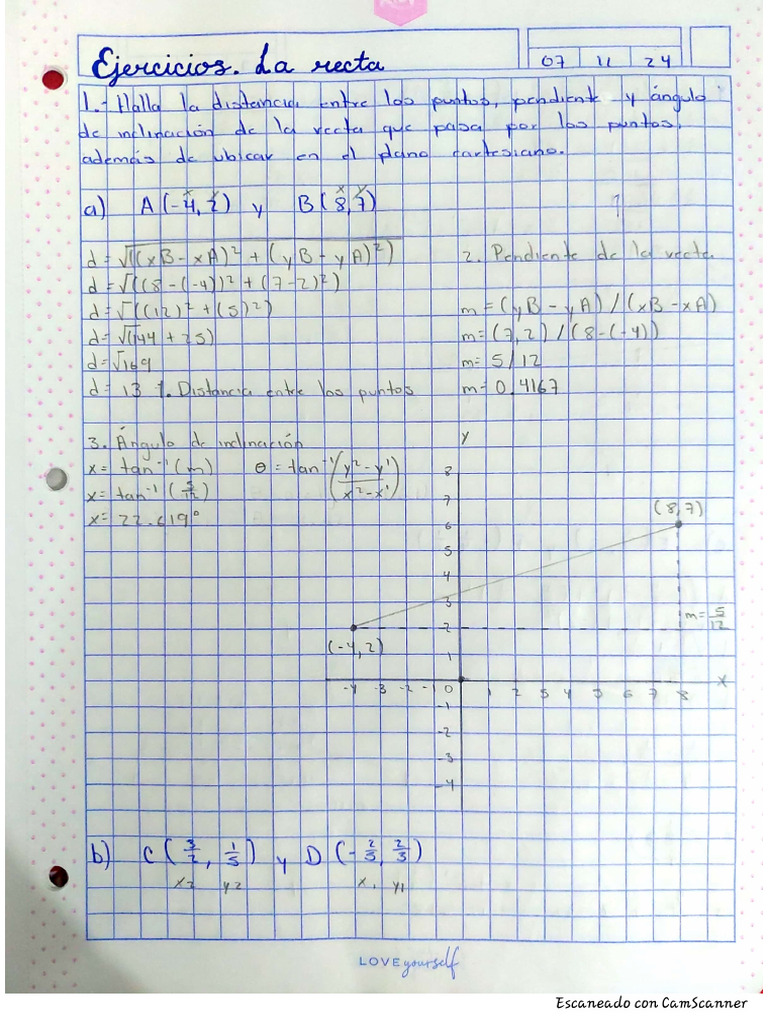 Ejercicios. La recta
07 | 11 | 24
1.- Halla la distancia entre los puntos, pendiente y ángulo
de inclinación de la recta que pasa por los puntos,
además de ubicar en el plano cartesiano.
x y x y
a) A(-4,2) y B(8,7)
d=√((xB-xA)²+(yB-yA)²)
2. Pendiente de la recta.
d=√((8-(-4))²+(7-2)²)
d=√((12)²+(5)²)
m=(yB-yA)/(xB-xA)
d=√(144+25)
m=(7,2)/(8-(-4))
d=√169
m=5/12
d=13 1. Distancia entre los puntos
m=0.4167
3. Ángulo de inclinación
x=tan⁻¹(m) θ=tan⁻¹(y²-y'/x²-x')
x=tan⁻¹(5/12)
x=22.619°
y
8
7
(8,7)
6
5
4
3
m=5/12
2
(-4,2)
1
-4 -3 -2 -1 0 1 2 3 4 5 6 7 8 x
-1
-2
-3
-4
b) C(3/2, 1/5) y D(-2/5, 2/3)
x2 y2 x1 y1
LOVE yourself
Escaneado con CamScanner